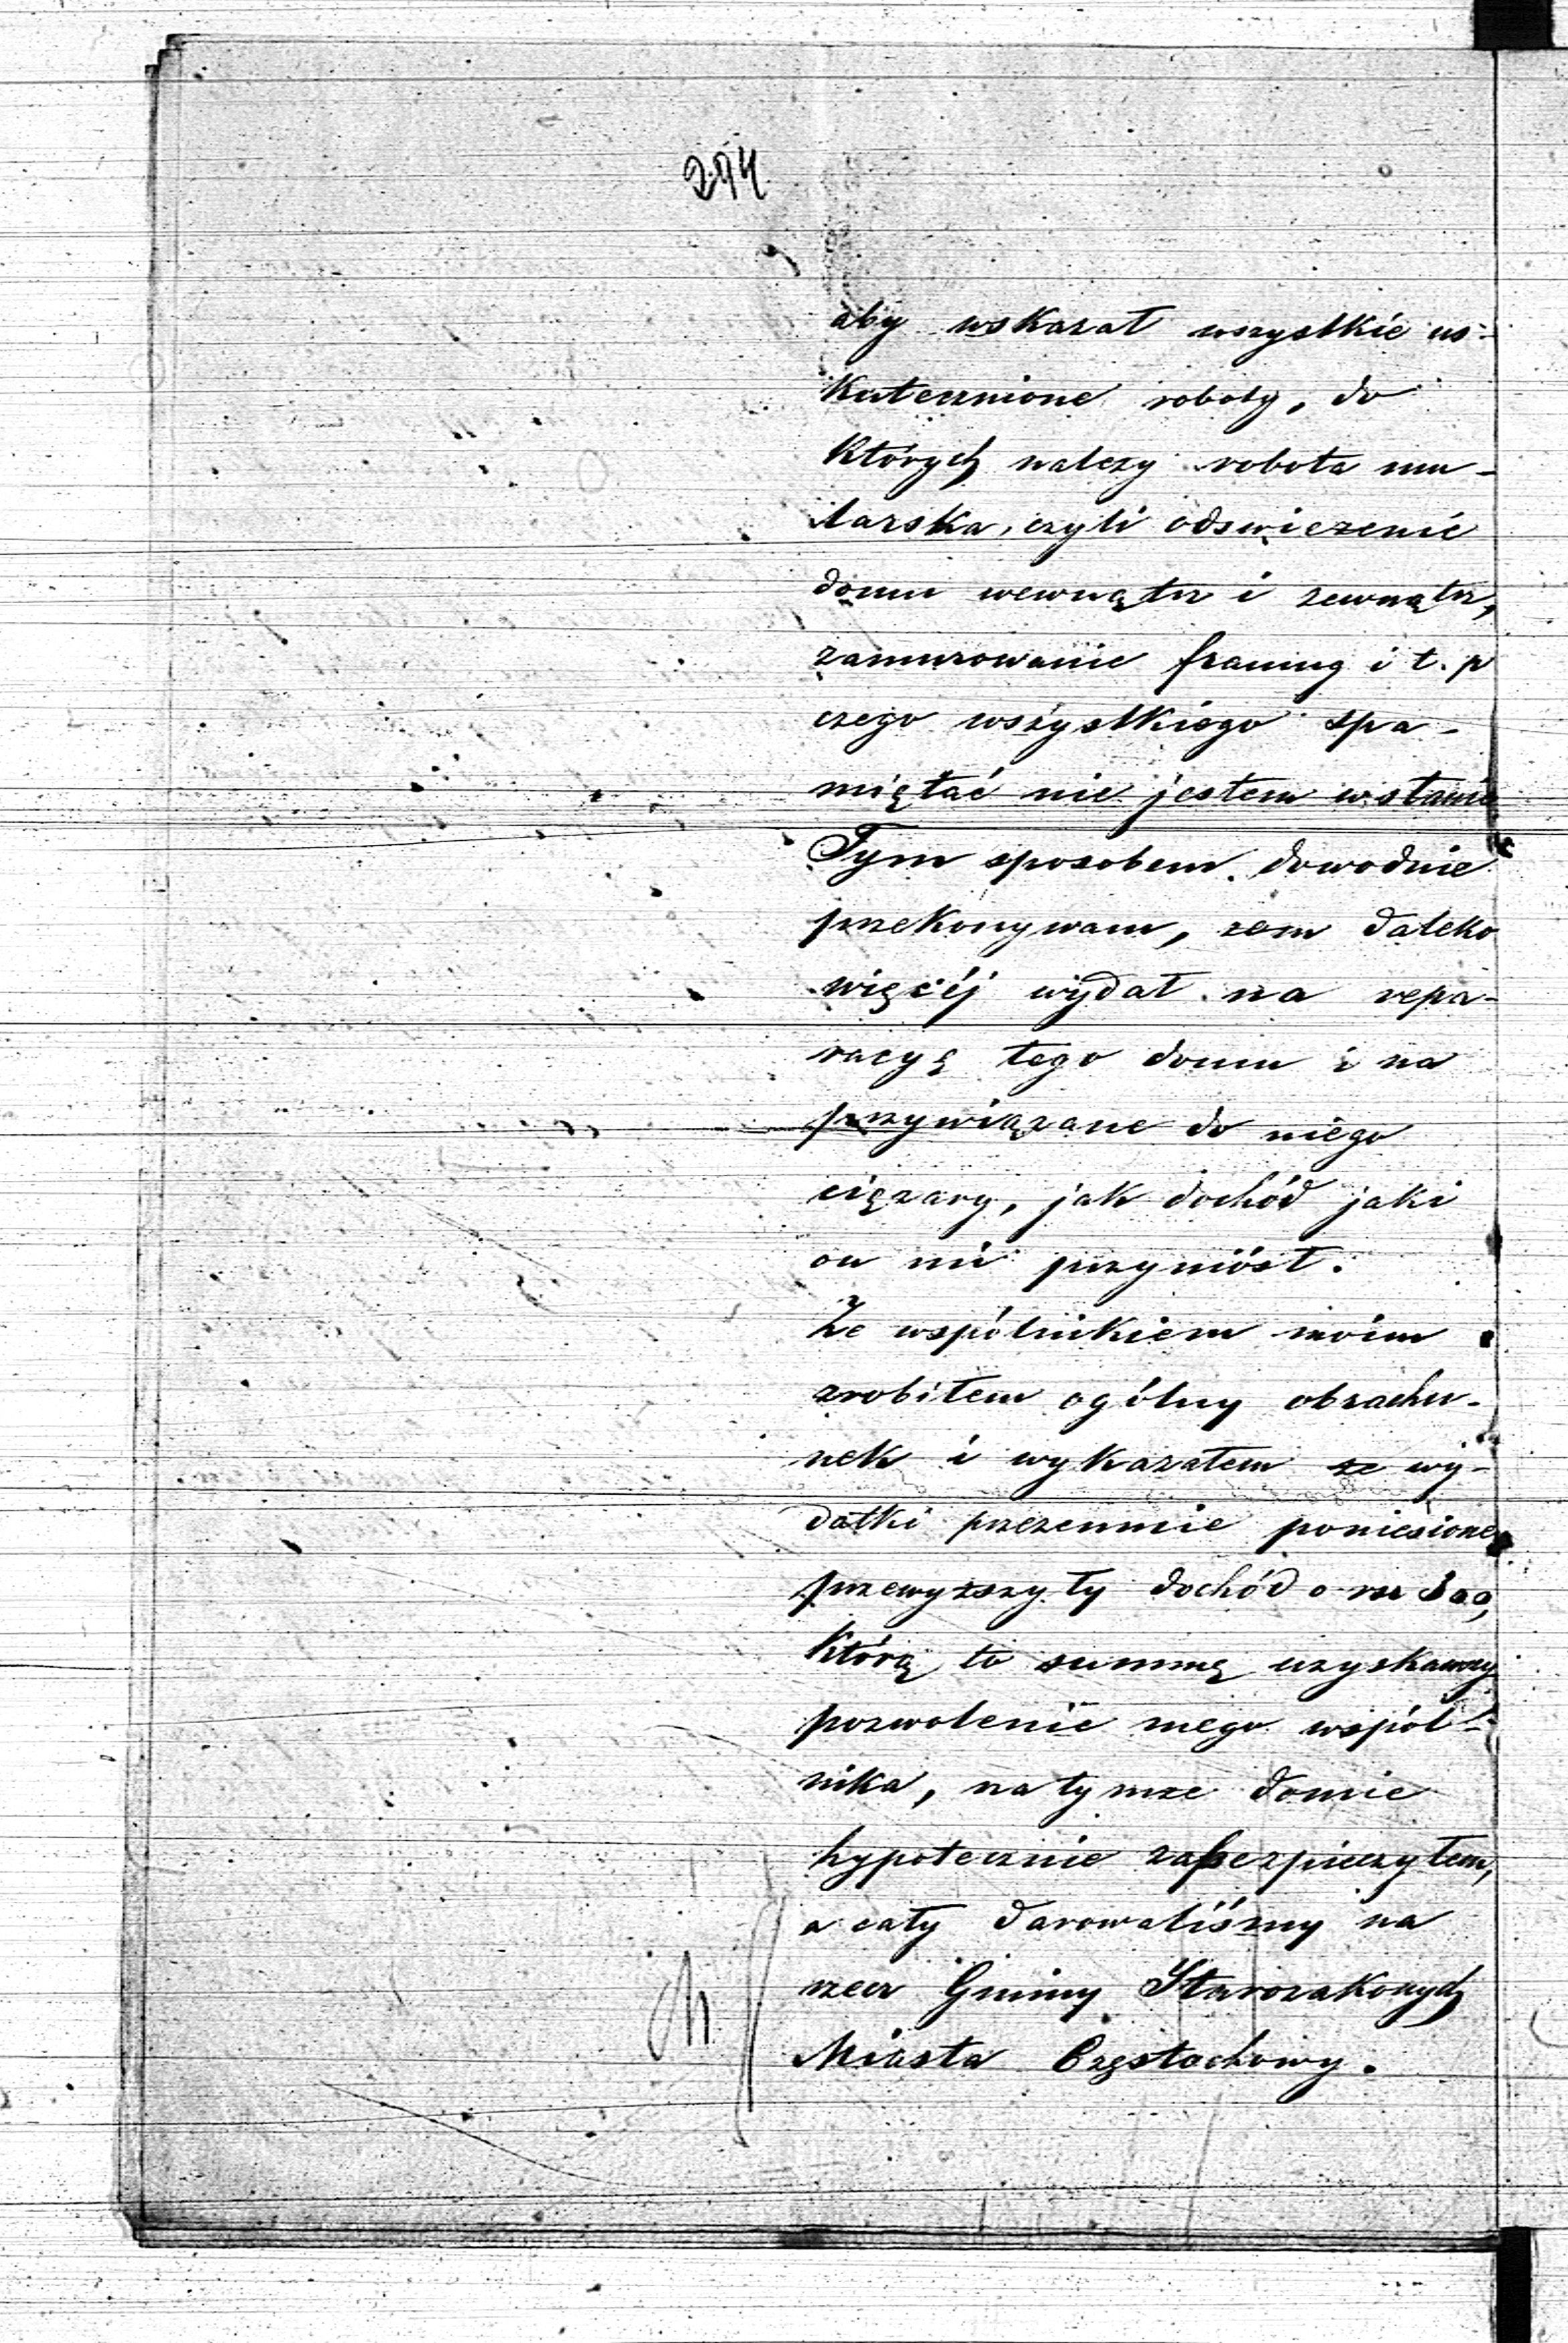 294
aby wskazał wszystkie us-
kutecznione roboty, do
których należy robota mu-
larska, czyli odswieżenie
domu wewnątrz i zewnątrz,
zamurowanie framug i t. p
czego wszystkiego spa-
miętać nie jestem wstanie
Tym sposobem dowodnie
przekonywam, żem daleko
więcéj wydał na repa-
racyę tego domu i na
przywiązane do niego
ciężary, jak dochód jaki
on mi przyniósł.
Ze wspólnikiem moim
zrobiłem ogólny obrachu-
nek i wykazałem że wy-
datki przezemnie poniesione
przewyższyły dochód o rsr
którą to summę uzyskawszy
pozwolenie mego wspól-
nika, na tymże domie
hypotecznie zabezpieczyłem,
a cały darowaliśmy na
rzecz Gminy Starozakonych
Miasta Częstochowy.